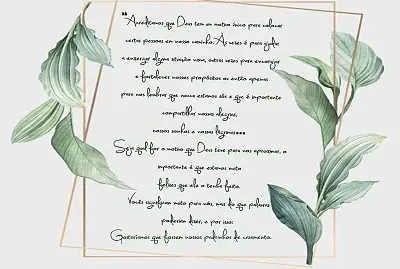 "Acreditamos que Deus tem um motivo único para colocar
certas pessoas em nosso caminho. Às vezes é para ajudar
a enxergar alguma situação ruim, outras vezes para encorajar
e fortalecer nossos propósitos ou então apenas
para nos lembrar que nunca estamos sós e que é importante
compartilhar nossas alegrias,
nossos sonhos e nossas lágrimas...
Seja qual for o motivo que Deus teve para nos aproximar, o
importante é que estamos muito
felizes que ele o tenha feito.
Vocês significam muito para nós, mais do que palavras
poderiam dizer, e por isso:
Gostaríamos que fossem nossos padrinhos de casamento.